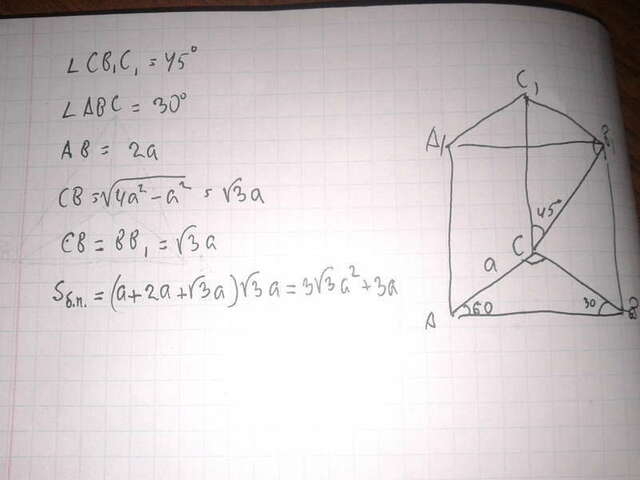 ∠CB₁C₁ = 45°
∠ABC = 30°
AB = 2a
CB = √4a² - a² = √3a
CB = BB₁ = √3a
Sб.п. = (a + 2a + √3a)√3a = 3√3a² + 3a
C₁
A₁
B₁
45°
C
a
A
60
30
B